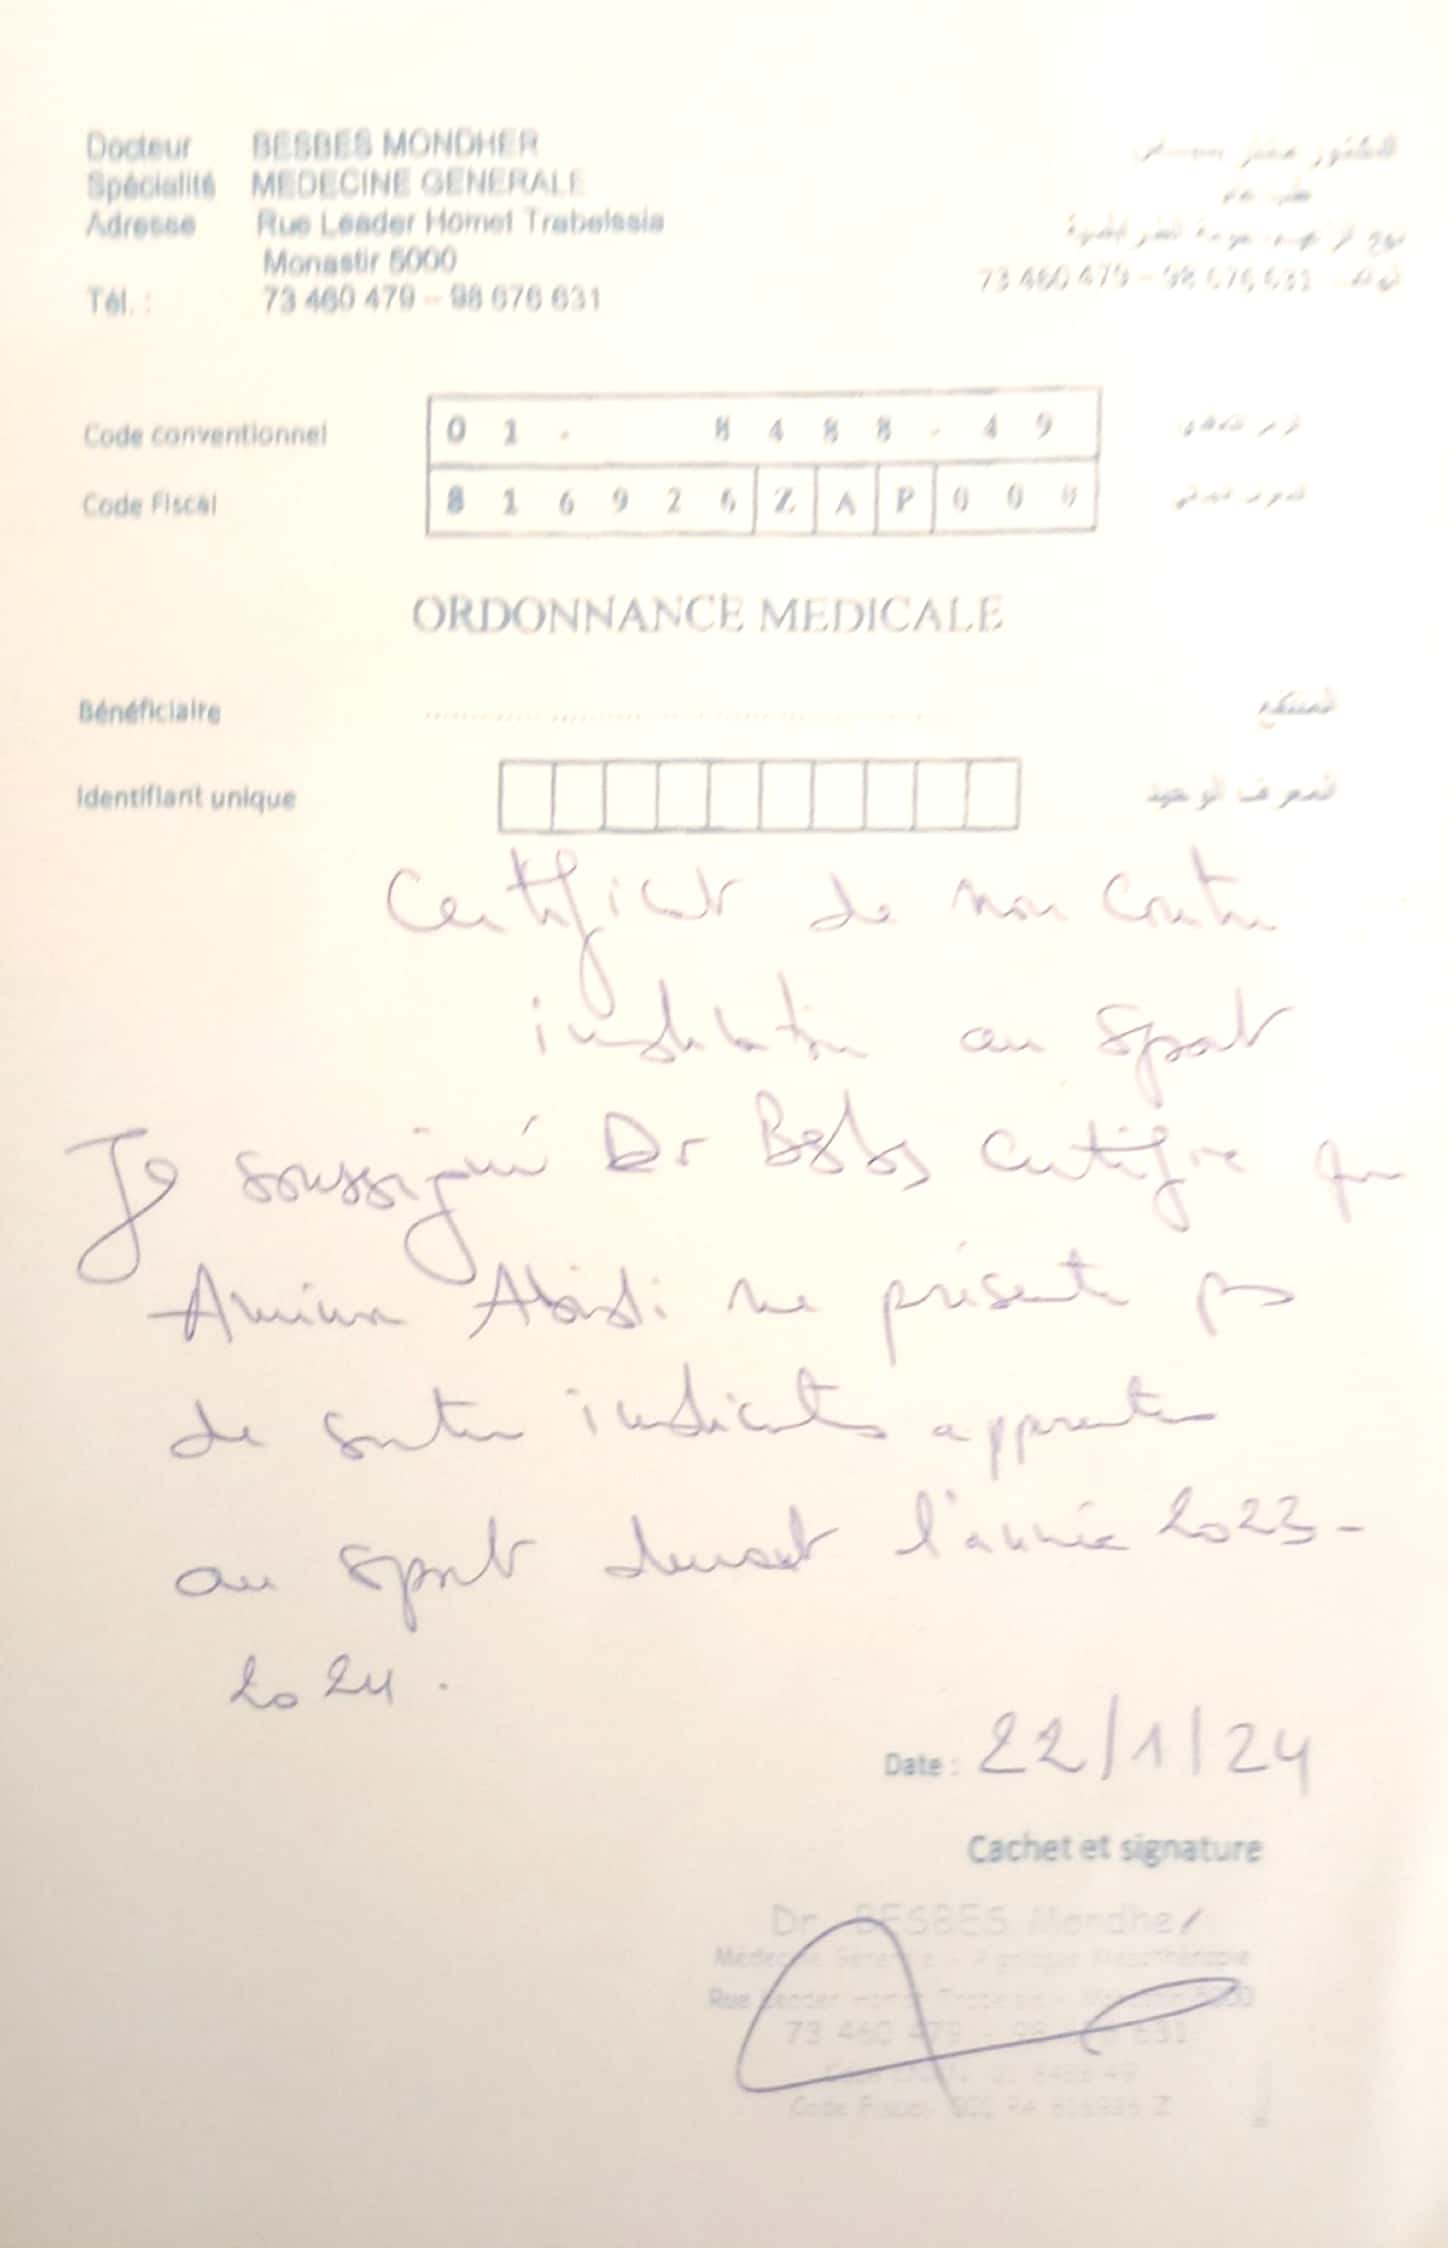 Docteur BESBES MONDHER
Spécialité MEDECINE GENERALE
Adresse Rue Leader Homet Trabelssia
Monastir 5000
Tél. : 73 460 479 – 98 676 631
73 460 479 – 98 676 631
Code conventionnel 0 1 - 8 4 8 8 - 4 9
Code Fiscal 8 1 6 9 2 6 Z A P 0 0 0
ORDONNANCE MEDICALE
Bénéficiaire المنتفع
Identifiant unique المعرف الوحيد
Certificat de non contre
indication au sport
Je soussigné Dr Besbes certifie que
Amina Abidi ne présente pas
de contre indications apparentes
au sport durant l'année 2023-
2024.
Date : 22/1/24
Cachet et signature
Dr BESBES Mondher
73 460 479 - 98 631
Code Fiscal